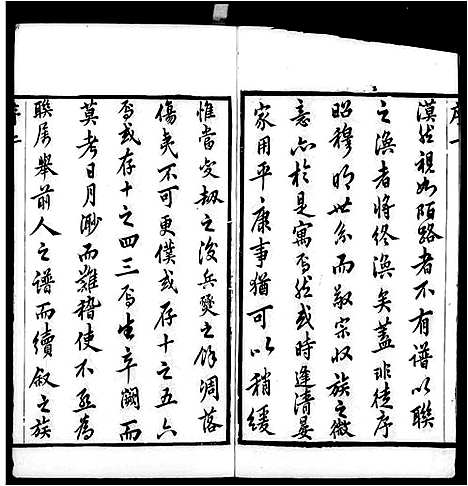 序一
漠然視如陌路者不有譜以聯
之渙者將終渙矣蓋非徒序
昭穆明世系而敬宗收族之微
意亦於是寓焉然或時逢清晏
家用平康事猶可以稍緩
惟當變劫之後兵燹之餘凋落
傷夷不可更僕或存十之五六
焉或存十之四三焉生卒闕而
莫考日月渺而難稽使不亟為
聯屬舉前人之譜而續敘之族
序二